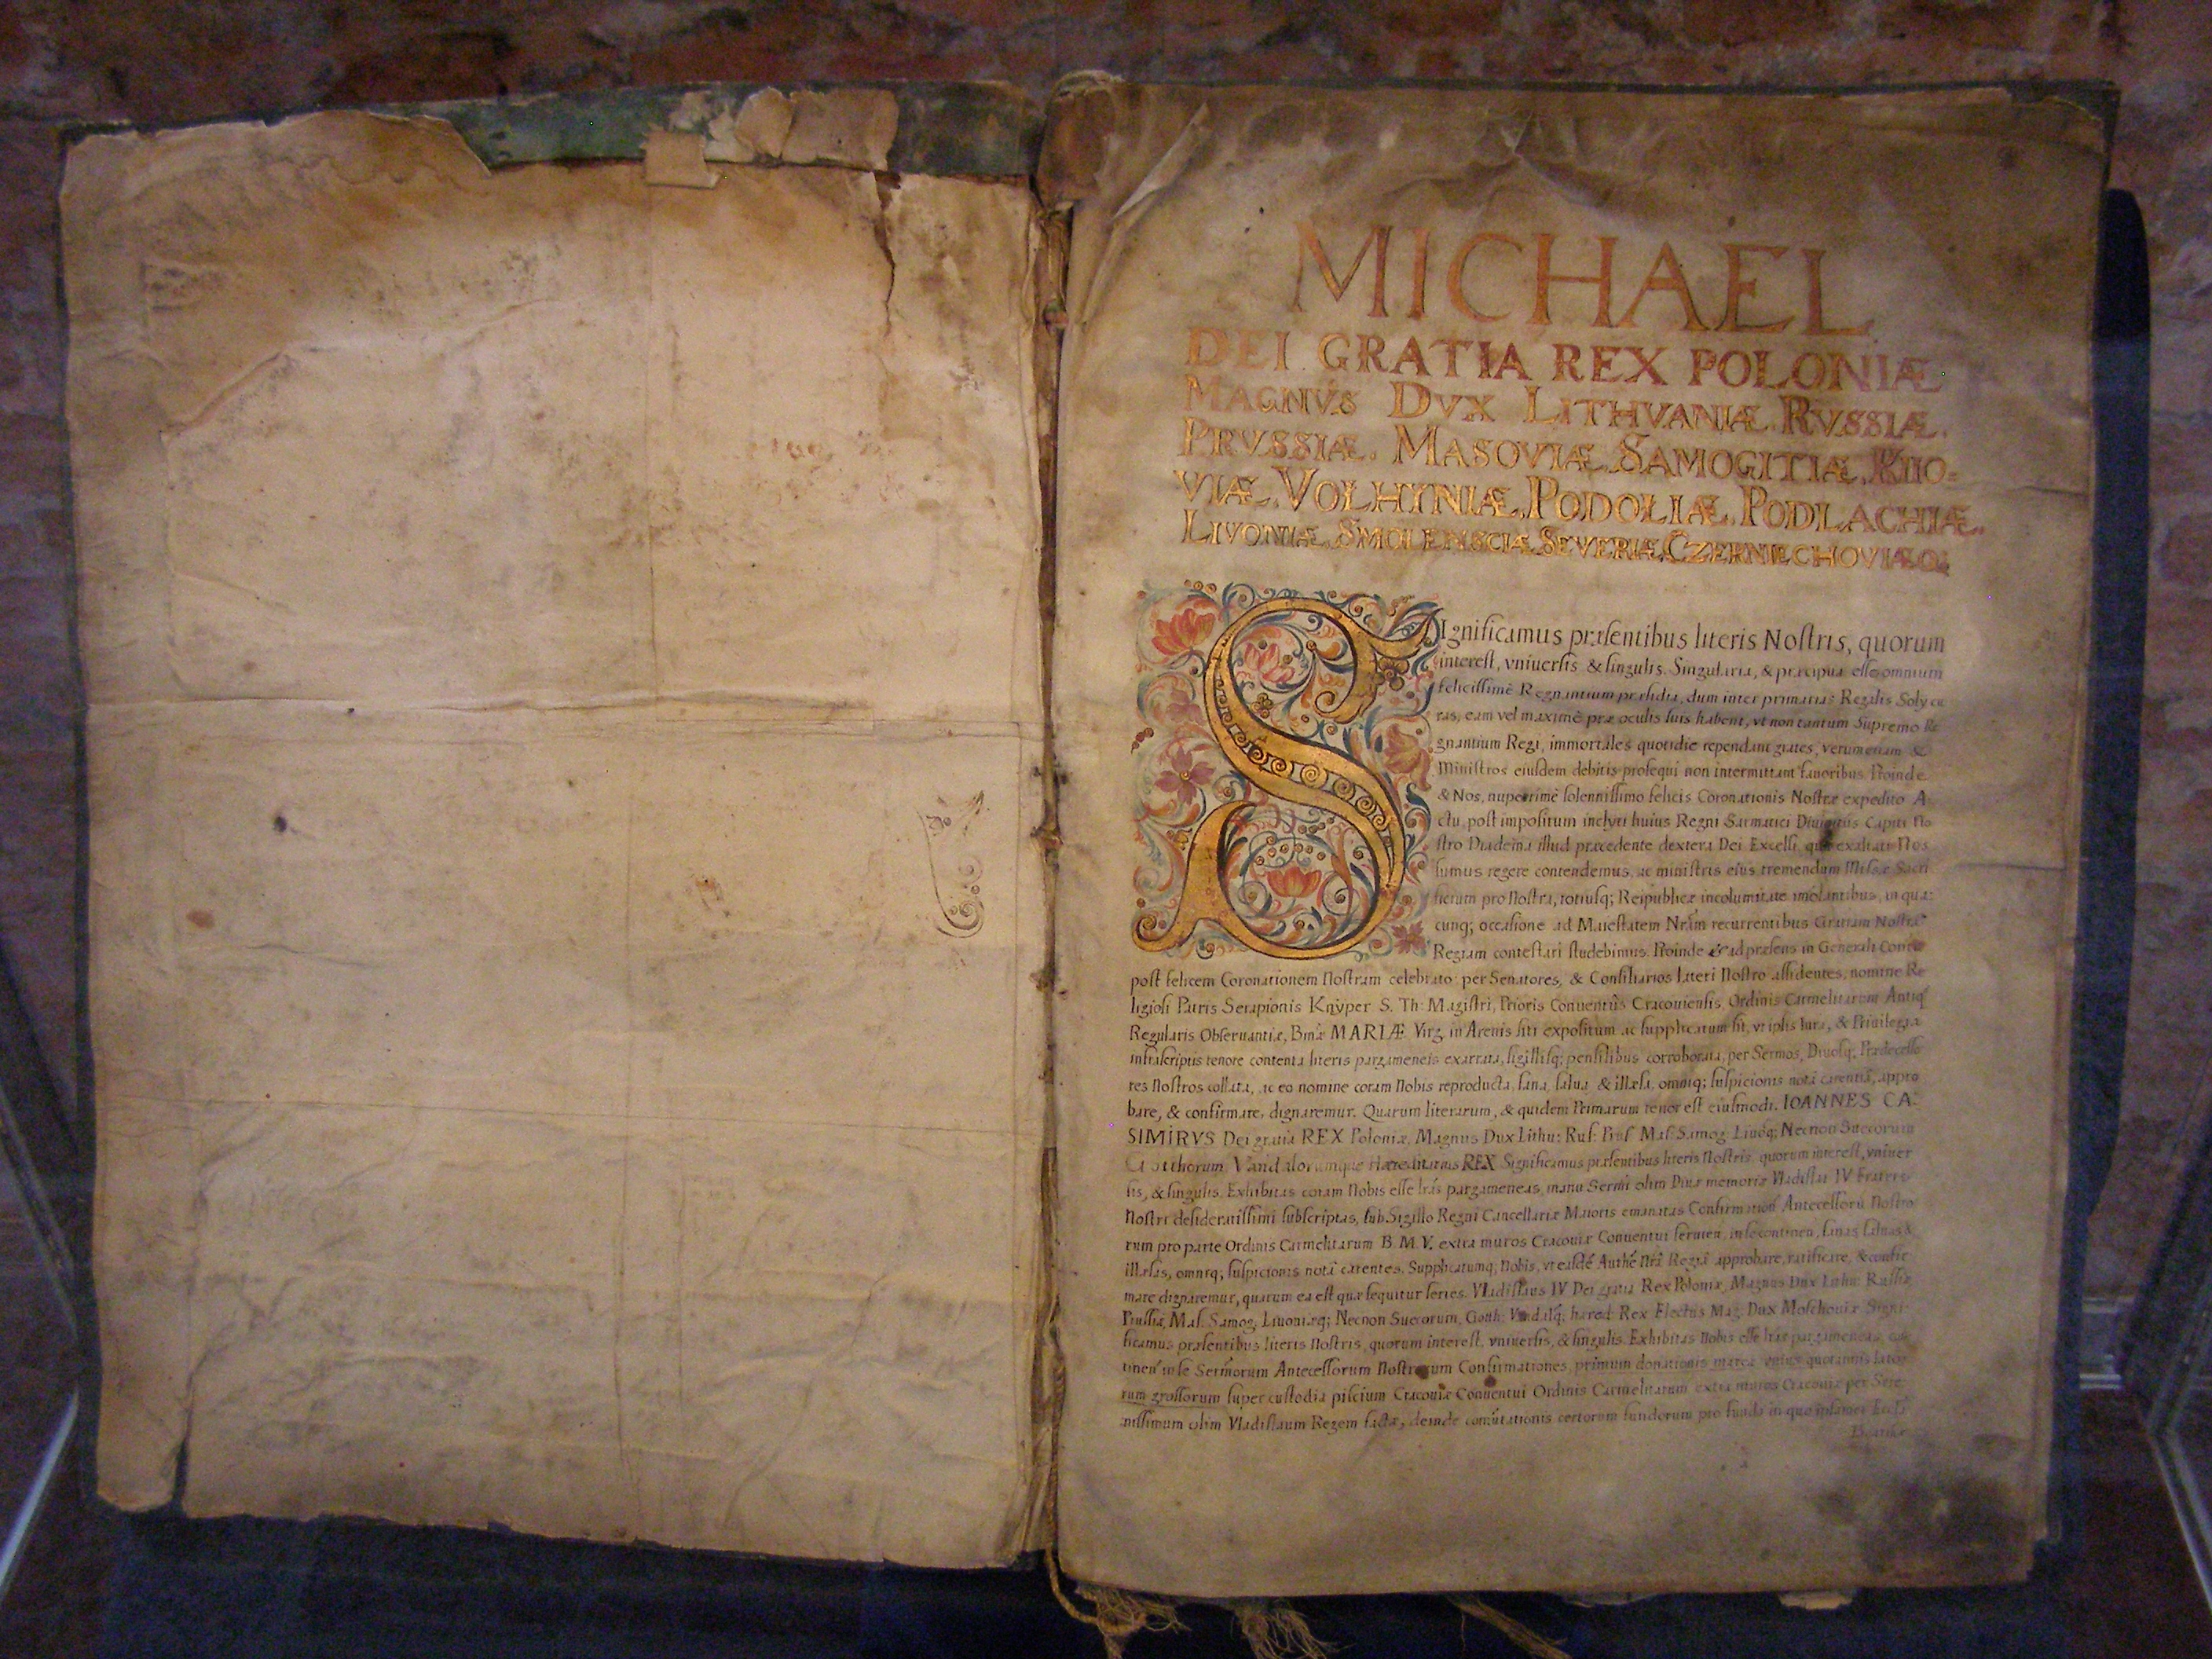 MICHAEL
DEI GRATIA REX POLONIÆ
MAGNVS DVX LITHVANIÆ. RVSSIÆ.
PRVSSIÆ. MASOVIÆ. SAMOGITIÆ. KIIO-
VIÆ. VOLHYNIÆ. PODOLIÆ. PODLACHIÆ.
LIVONIÆ. SMOLENSCIÆ. SEVERIÆ. CZERNIECHOVIÆQ;
SIgnificamus præsentibus literis Nostris, quorum
interest, vniuersis & singulis. Singularia, & præcipua esse omnium
felicissimè Regnantium præsidia, dum inter primarias Regalis Soly cu
ras, eam vel maximè præ oculis suis habent, vt non tantum Supremo Re
gnantium Regi, immortales quotidie rependant grates, verumetiam &
Ministros eiusdem debitis prosequi non intermittant fauoribus. Proinde
& Nos, nuperrimè solennissimo felicis Coronationis Nostræ expedito A
ctu, post impositum inclyti huius Regni Sarmatici Diuinitus Capiti No
stro Diadema illud præcedente dextera Dei Excelsi, qua exaltati Nos
sumus regere contendemus, ac ministris eius tremendum Missæ Sacri
ficium pro Nostra, totiusq; Reipublicæ incolumitate imolantibus, in qua
cunq; occasione ad Maiestatem Nram recurrentibus Gratiam Nostra
Regiam contestari studebimus. Proinde & ad præsens in Generali Conu
post felicem Coronationem Nostram celebrato per Senatores, & Consiliarios lateri Nostro assidentes, nomine Re
ligiosi Patris Serapionis Knÿper S. Th: Magistri, Prioris Conuentûs Cracouiensis, Ordinis Carmelitarum Antiq
Regularis Obseruantiæ, Bmæ MARIÆ Virg. in Arenis siti expositum ac supplicatum sit, vt ipsis Iura, & Priuilegia
infrascriptis tenore contenta literis pargameneis exarata, sigillisq; pensilibus corroborata, per Sermos, Diuosq; Prædecesso
res Nostros collata, ac eo nomine coram Nobis reproducta, sana, salua & illæsa, omniq; suspicionis notâ carentiâ, appro
bare, & confirmare, dignaremur. Quarum literarum, & quidem Primarum tenor est eiusmodi. IOANNES CA.
SIMIRVS Dei gratia REX Poloniæ, Magnus Dux Lithu: Rus: Prus: Mas: Samog: Liuôq; Necnon Suecorum
Gotthorum Vandalorumque Hæreditarius REX Significamus præsentibus literis Nostris quorum interest, vniuer
sis, & singulis. Exhibitas coram Nobis esse lrás pargameneas, manu Sermi olim Diuæ memoriæ Vladislai IV Fratris
Nostri desideratissimi subscriptas, sub Sigillo Regni Cancellariæ Maioris emanatas Confirmation Antecessorû Nostro
rum pro parte Ordinis Carmelitarum B. M. V. extra muros Cracouiæ Conuentui seruien, in se continen, sanas saluas &
illæsas, omniq; suspicionis notâ carentes. Supplicatumq; Nobis, vt easdé Authé Nrâ Regiâ approbare, ratificare, & confir
mare dignaremur, quarum ea est quæ sequitur series. Vladislaus IV Dei gratia Rex Poloniæ, Magnus Dux Lithu: Russiæ
Prussiæ, Mas. Samog. Liuoniæq; Necnon Suecorum, Goth: Vandalq; hæred: Rex Electus Mag: Dux Moschouiæ Signi
ficamus præsentibus literis Nostris, quorum interest, vniuersis, & singulis. Exhibitas Nobis esse lras pargameneas, con
tinen in se Sermorum Antecessorum Nostrorum Confirmationes, primum donationis marcæ vnius quotannis lato
rum grossorum super custodia piscium Cracouiæ Conuentui Ordinis Carmelitarum extra muros Cracouiæ per Sere
nissimum olim Vladislaum Regem factæ, deinde comutationis certorum fundorum pro fundo in quo ipsamet Eccl